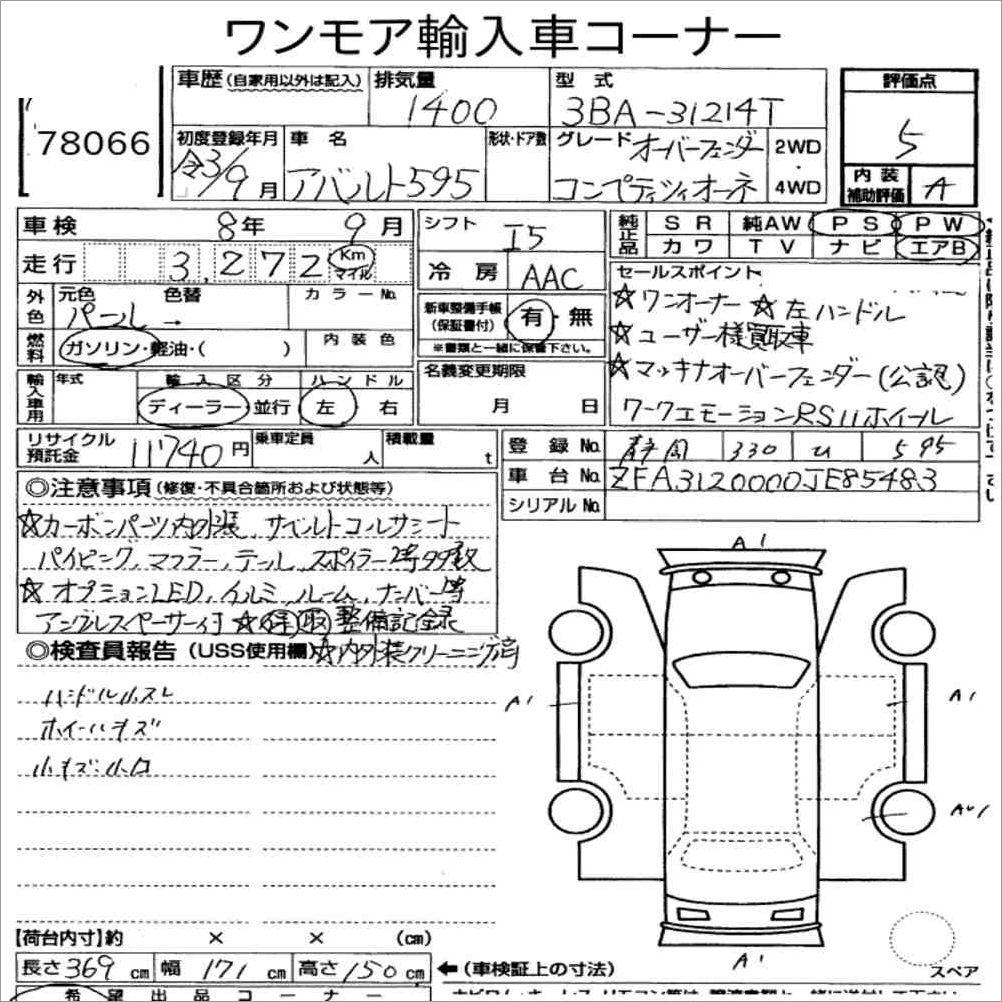 ワンモア輸入車コーナー
78066
車歴(自家用以外は記入) 排気量 1400
型式 3BA-31214T
評価点 5
内装補助評価 A
初度登録年月 令3/9月
車名 アバルト595
形状・ドア数
グレード オーバーフェンダー
コンペティツィオーネ
2WD・4WD
車検 8年 9月
走行 3,272 Km マイル
外色 元色 パール → 色替 カラーNo.
燃料 ガソリン・軽油・( ) 内装色
輸入車用 年式 輸入区分 ディーラー 並行 ハンドル 左 右
シフト I5
冷房 AAC
新車整備手帳(保証書付) 有・無
※書類と一緒に保管下さい。
名義変更期限
月 日
純正品 SR 純AW PS PW
カワ TV ナビ エアB
セールスポイント
☆ワンオーナー ☆左ハンドル
☆ユーザー様買取車
☆マッキナオーバーフェンダー(公認)
ワークエモーションRS11ホイール
リサイクル預託金 11740円 乗車定員 人 積載量 t
登録No. 静岡 330 ひ 595
車台No. ZFA3120000JE85483
シリアルNo.
◎注意事項(修復・不具合箇所および状態等)
☆カーボンパーツ内外装、サベルトコルサシート
パイピング、マフラー、テール、スポイラー等多数
☆オプションLED、イルミ、ルーム、ナンバー等
スペーサー付 ☆ 取 整備記録
◎検査員報告(USS使用欄) ☆内外装クリーニング済
ハンドル小スレ
ホイールキズ
小キズ・小凹
A1
A1
A1
A1
【荷台内寸】約 × × (cm)
長さ369cm 幅171cm 高さ150cm
←(車検証上の寸法)
スペア
希望出品コーナー